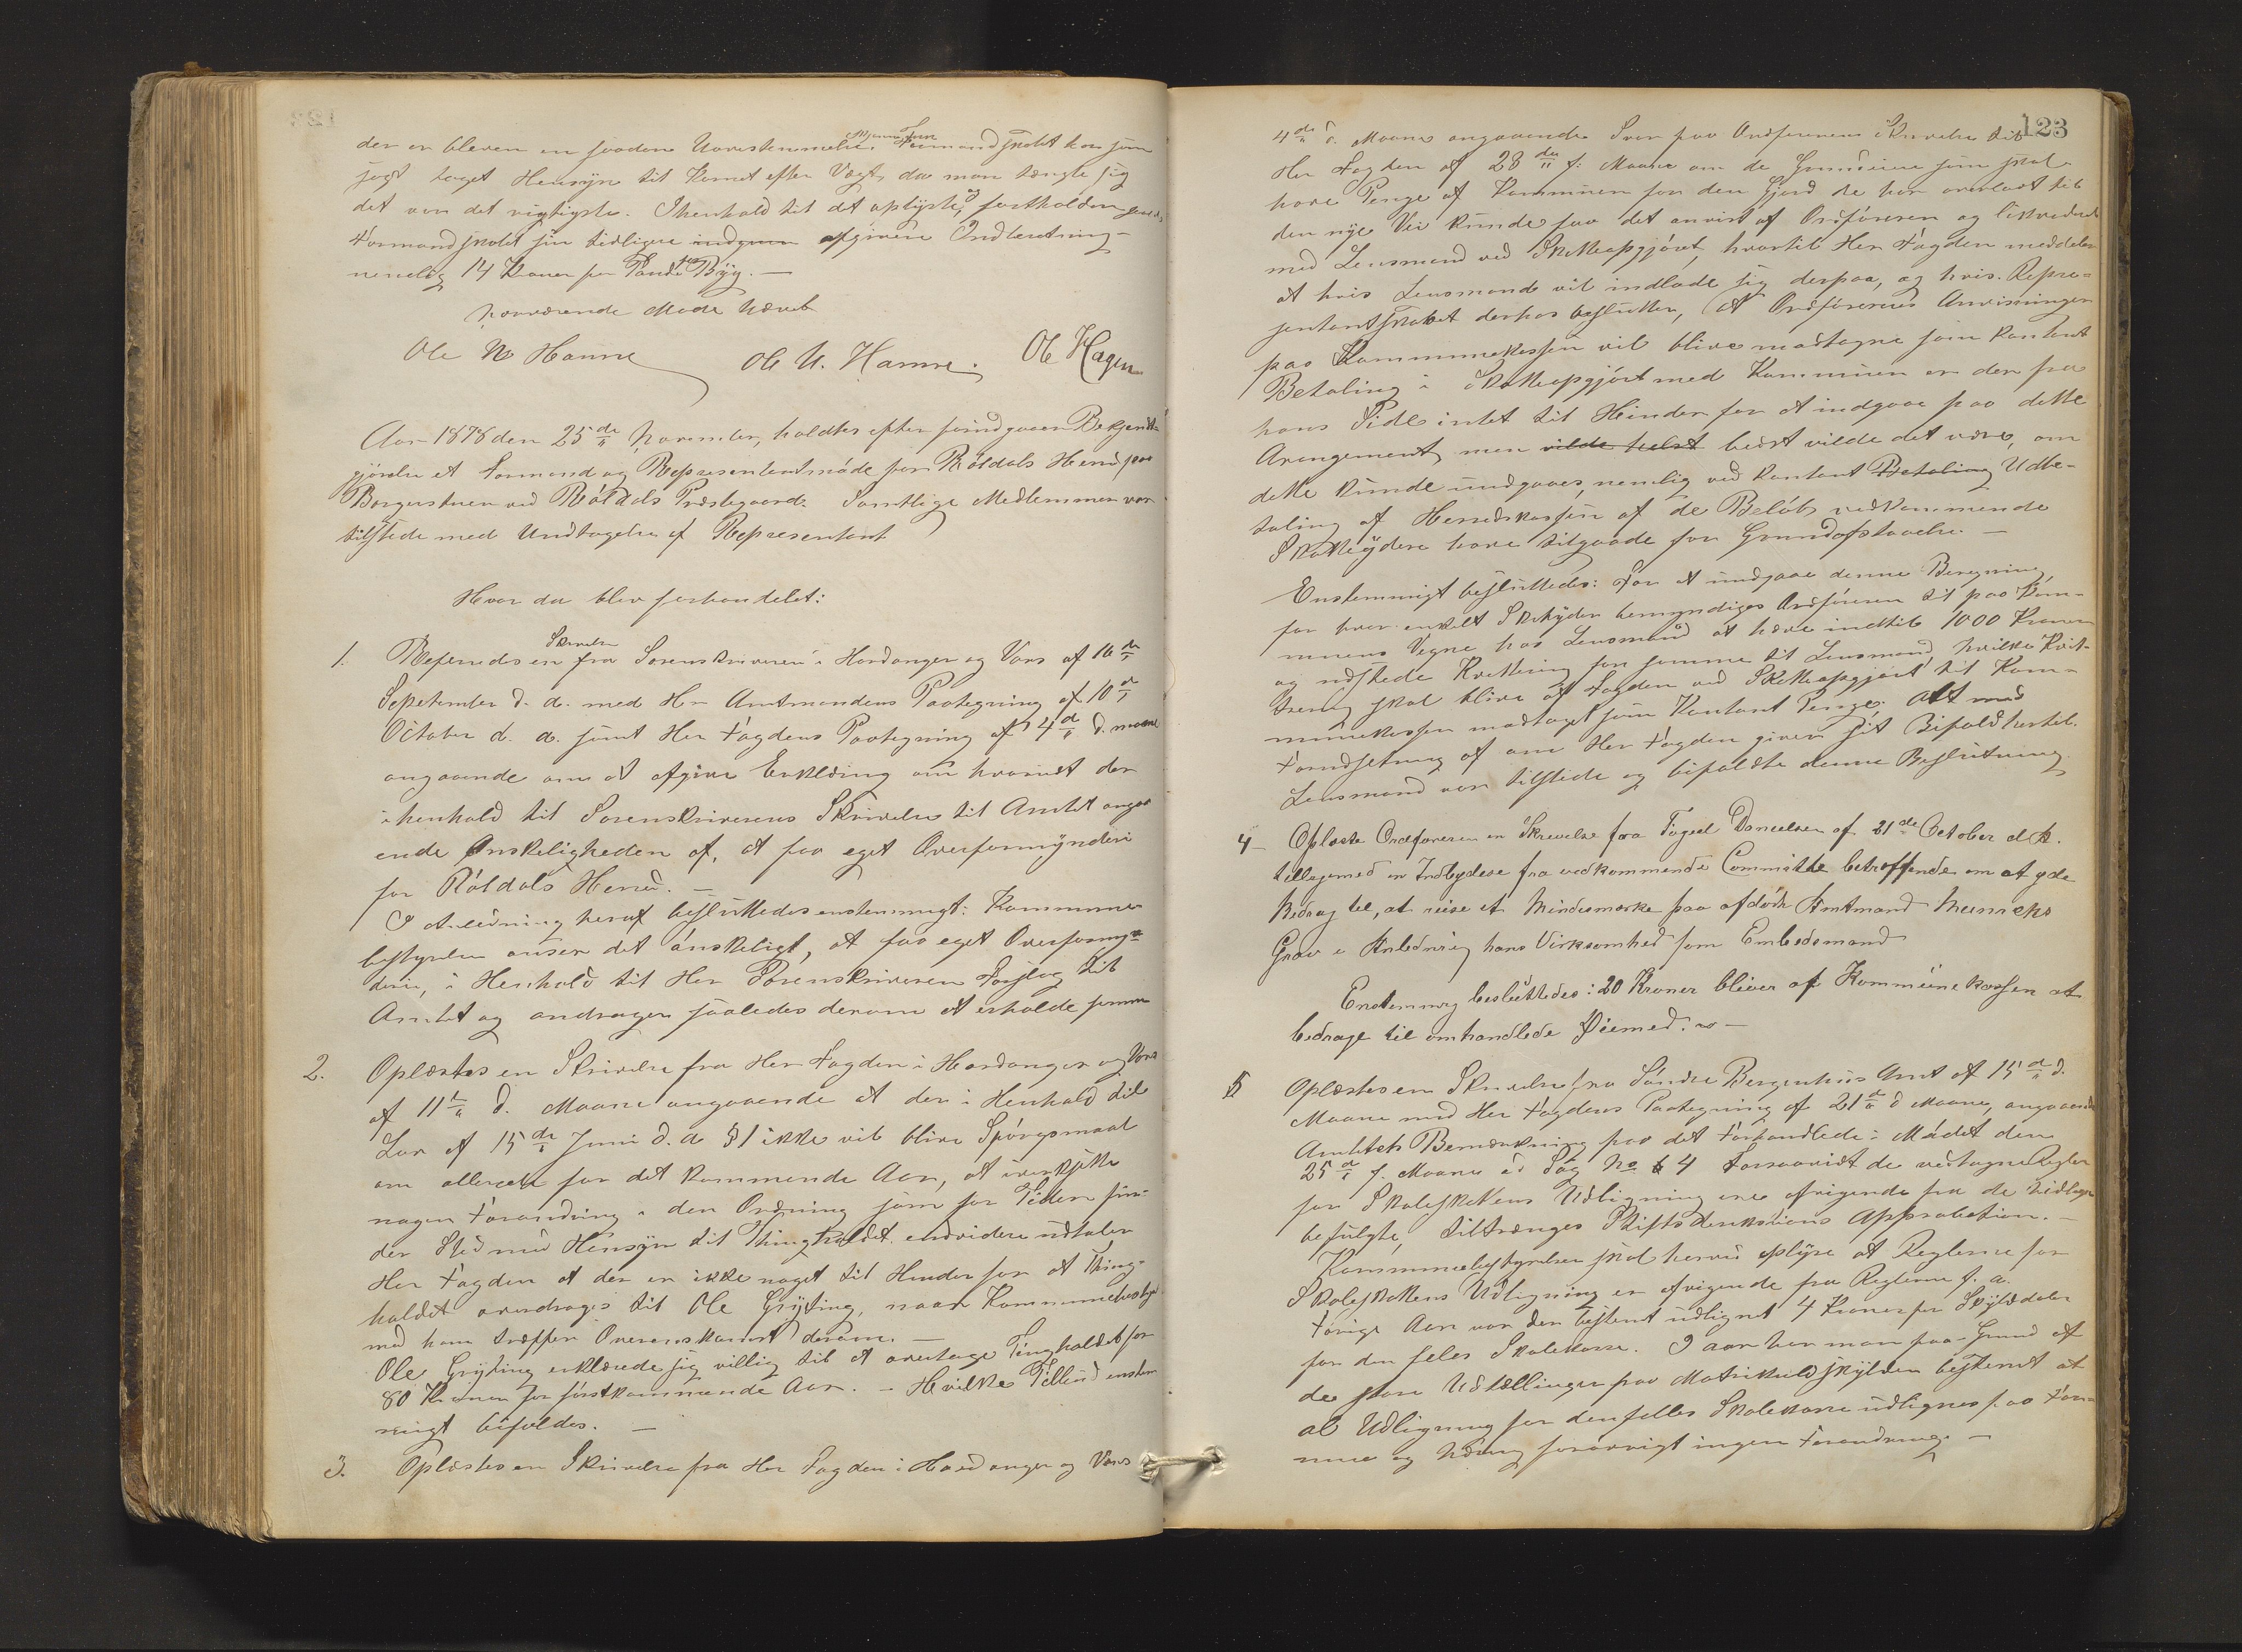 der er bleven en saadan Uoverstemmelse. Formandskabet har som
sagt taget Hensyn til Kornet efter Vægt, da man tængte sig
det var det rigtigste. I henhold til det oplyste, og fastholden
Formandskabet sin tidligere indgivne afgivne Indberetning
nemlig 14 Kroner per Tønde Byg. —
nærværende Møde hævet
Ole N Hamre
Ole U. Hamre.
Ole Hagen
Aar 1878 den 25de November, holdtes efter forudgaaen Bekjendt-
gjørelse et Formand og Representantmøde for Røldals Herred paa
Borgerstuen ved Røldals Præstegaard. Samtlige Medlemmer var
tilstede med Undtagelse af Representant
Hvor da blev forhandelet:
1. Refereredes en Skrivelse fra Sorenskriveren i Hardanger og Vors af 16de
September d. a. med Hr Amtmandens Paategning af 10de
October d. a. samt Her Fogdens Paategning af 4de d. maane
angaaende om at afgive Erklæring om hvorvidt der
i henhold til Sorenskriverens Skrivelse til Amtet anga-
ende Ønskeligheden af, at faa eget Overformynderi
for Røldals Herred. —
I Anledning heraf besluttedes enstemmigt: Kommune-
bestyrelsen anser det ønskeligt, at faa eget Overformyn-
deri, i Henhold til Her Sorenskriverens Forslag til
Amtet og andrager saaledes derom at erholde samme
2. Oplæstes en Skrivelse fra Her Fogden i Hardanger og Vors
af 11te d. Maane angaaende at der i Henhold til
Lov af 15de Juni d. a. § 1 ikke vil blive Spørgsmaal
om allerede for det kommende Aar, at iverksætte
nogen Forandring i den Ordning som for Tiden fin-
der Sted med Hensyn til Thingholdet. endvidere udtaler
Her Fogden at der er ikke noget til Hinder for at Thing-
holdet overdrages til Ole Gryting, naar Kommunebestyr
med ham træffer Overenskomst derom. —
Ole Gryting erklærede sig villig til at overtage Tingholdet for
80 Kroner for førstkommende Aar. — Hvilke Tilbud enstem
migt bifaldes. —
3. Oplæstes en Skrivelse fra Her Fogden i Hardanger og Vors
123
4de d. Maane angaaende Svar paa Ordførerens Skrivelse til
Her Fogden af 28de f. Maane om de Grundeiere som skal
have Penge af Kommunen for den Jord de har overladt til
den nye Vei kunde faa det anvist af Ordføreren og likvideret
med Lensmand ved Skatteopgjøret, hvortil Her Fogden meddeler
at hvis Lensmand vil indlade sig derpaa, og hvis Repre-
sentantskabet derhos beslutter, at Ordførerens Anvisninger
paa Kommunekassen vil blive modtagne som kontant
Betaling i Skatteopgjøret med Kommunen er der fra
hans Side intet til Hinder for at indgaa paa dette
Arangement, men vilde helst bedst vilde det være, om
dette kunde undgaaes, nemlig ved kontant Betaling Udbe-
taling af Herredskassen af de Beløb vedkommende
Skatteydere have tilgaade for Grundafstaaelse —
Enstemmigt besluttedes: For at undgaae denne Beregning
for hver enkelt Skatyder bemyndiges Ordføreren til paa Kom-
munens Vegne hos Lensmand at hæve indtil 1000 Kroner
og udstede Kvittering for samme til Lensmand, hvilke Kvit-
tering skal blive af Fogden ved Skatteopgjøret til Kom-
munekassen modtaget som Kontant Penge. Alt med
Forudsetning af om Her Fogden giver sit Bifald hertil.
Lensmand var tilstede og bifaldte denne Beslutning
4 Oplæste Ordføreren en Skrivelse fra Foged Danielsen af 21de October d. A.
tilligemed en Indbydelse fra vedkommende Committe betreffende om at yde
Bidrag til, at reise et Mindesmærke paa afdøde Amtmand Meinichs
Grav i Anledning hans Virksomhed som Embedsmand
Enstemmig besluttedes: 20 Kroner bliver af Kommunekassen at
bidrage til omhandlede Øiemed. —
5 Oplæstes en Skrivelse fra Søndre Bergenhus Amt af 15de d.
Maane med Her Fogdens Paategning af 21de d Maane, angaaende
Amtets Bemerkning paa det Forhandlede i Mødet den
25de f. Maane i Sag No 4 Forsaavidt de vedtagne Regler
for Skoleskattens Udligning ere afvigende fra de tidligere
befulgte, tiltrænges Stiftsdirektions Approbation. —
Kommunebestyrelsen skal herved oplyse at Reglerne for
Skoleskattens Udligning er afvigende fra Reglerne f. a.
Forige Aar var den bestemt udlignet 4 Kroner per Skylddaler
for den felles Skolekasse. I aar har man paa Grund af
de store Udtællinger paa Matrikulskylden bestemt at
al Udligning for den felles Skolekasse udlignes paa For-
mue og Næring forøvrigt ingen Forandring. —